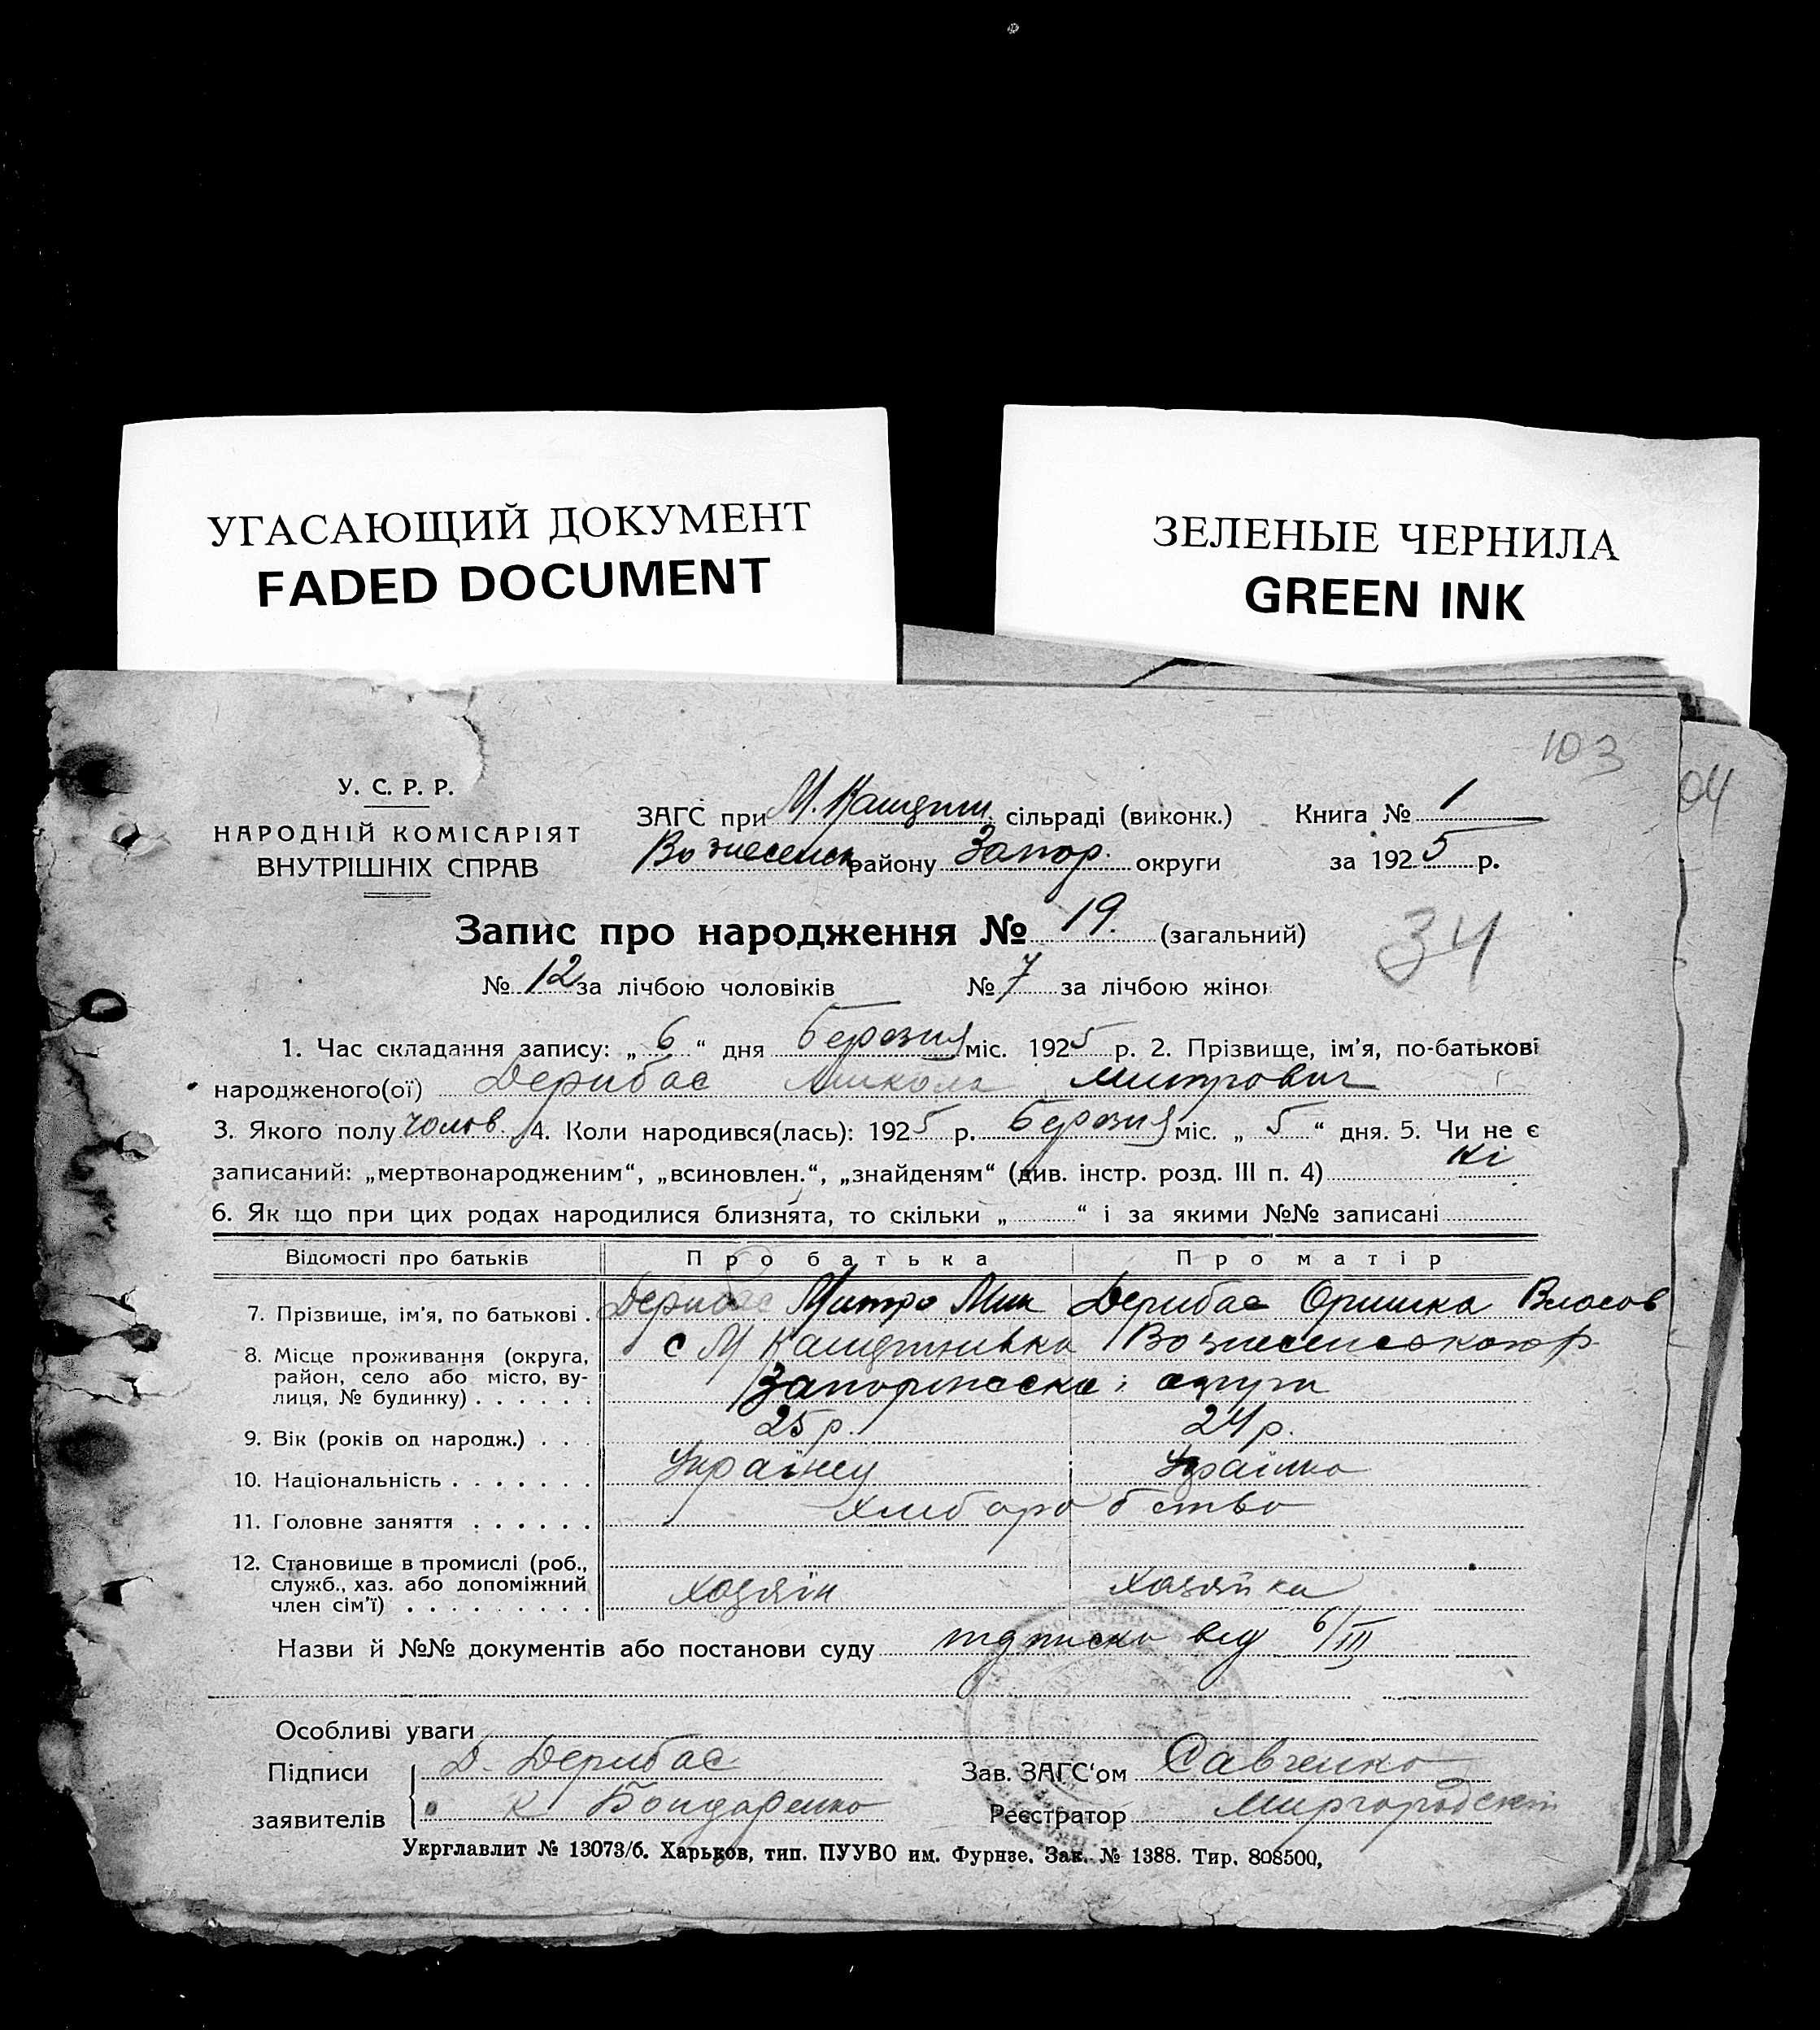 УГАСАЮЩИЙ ДОКУМЕНТ
FADED DOCUMENT
ЗЕЛЕНЫЕ ЧЕРНИЛА
GREEN INK
103
04
У. С. Р. Р.
НАРОДНІЙ КОМІСАРІЯТ
ВНУТРІШНІХ СПРАВ
ЗАГС при М. сільраді (виконк.)
Вознесенск району Запор. округи
Книга № 1
за 1925 р.
Запис про народження № 19. (загальний)
34
№ 12 за лічбою чоловіків № 7 за лічбою жінок
1. Час складання запису: „ 6 “ дня березня міс. 1925 р. 2. Прізвище, ім'я, по-батькові
народженого(ої) Дерибас Микола Митрович
3. Якого полу чолов. 4. Коли народився(лась): 1925 р. березня міс. „ 5 “ дня. 5. Чи не є
записаний: „мертвонародженим“, „всиновлен.“, „знайденям“ (див. інстр. розд. III п. 4) ні
6. Як що при цих родах народилися близнята, то скільки „ “ і за якими №№ записані
Відомості про батьків Про батька Про матір
7. Прізвище, ім'я, по батькові . Дерибас Митро Мик Дерибас Оришка Власов
8. Місце проживання (округа, район, село або місто, вулиця, № будинку) . . . . . . с М Вознесенского р
Запоріжської округи
9. Вік (років од народж.) . . . 25 р. 24 р.
10. Національність . . . . . . . Українец Українка
11. Головне заняття . . . . . . хлиборобство
12. Становище в промислі (роб.,
служб., хаз. або допоміжний
член сім'ї) . . . . . . . . . хозяїн хозяйка
Назви й №№ документів або постанови суду підписка від 6/III
Особливі уваги
Підписи заявителів
Д. Дерибас
К Бондаренко
Зав. ЗАГС'ом Савченко
Реєстратор Миргородский
Укрглавлит № 13073/б. Харьков, тип. ПУУВО им. Фурнзе. Зак. № 1388. Тир. 808500,